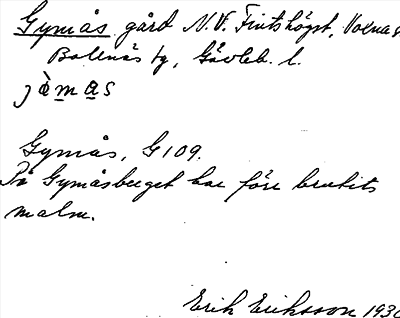 Gymås, gård N.V. Finshögst, Voxna s
Bollnäs tg, Gävleb. l.
jὰmas
Gymås, G 109.
På Gymåsberget har förr brutits
malm.
Erik Eriksson 1930